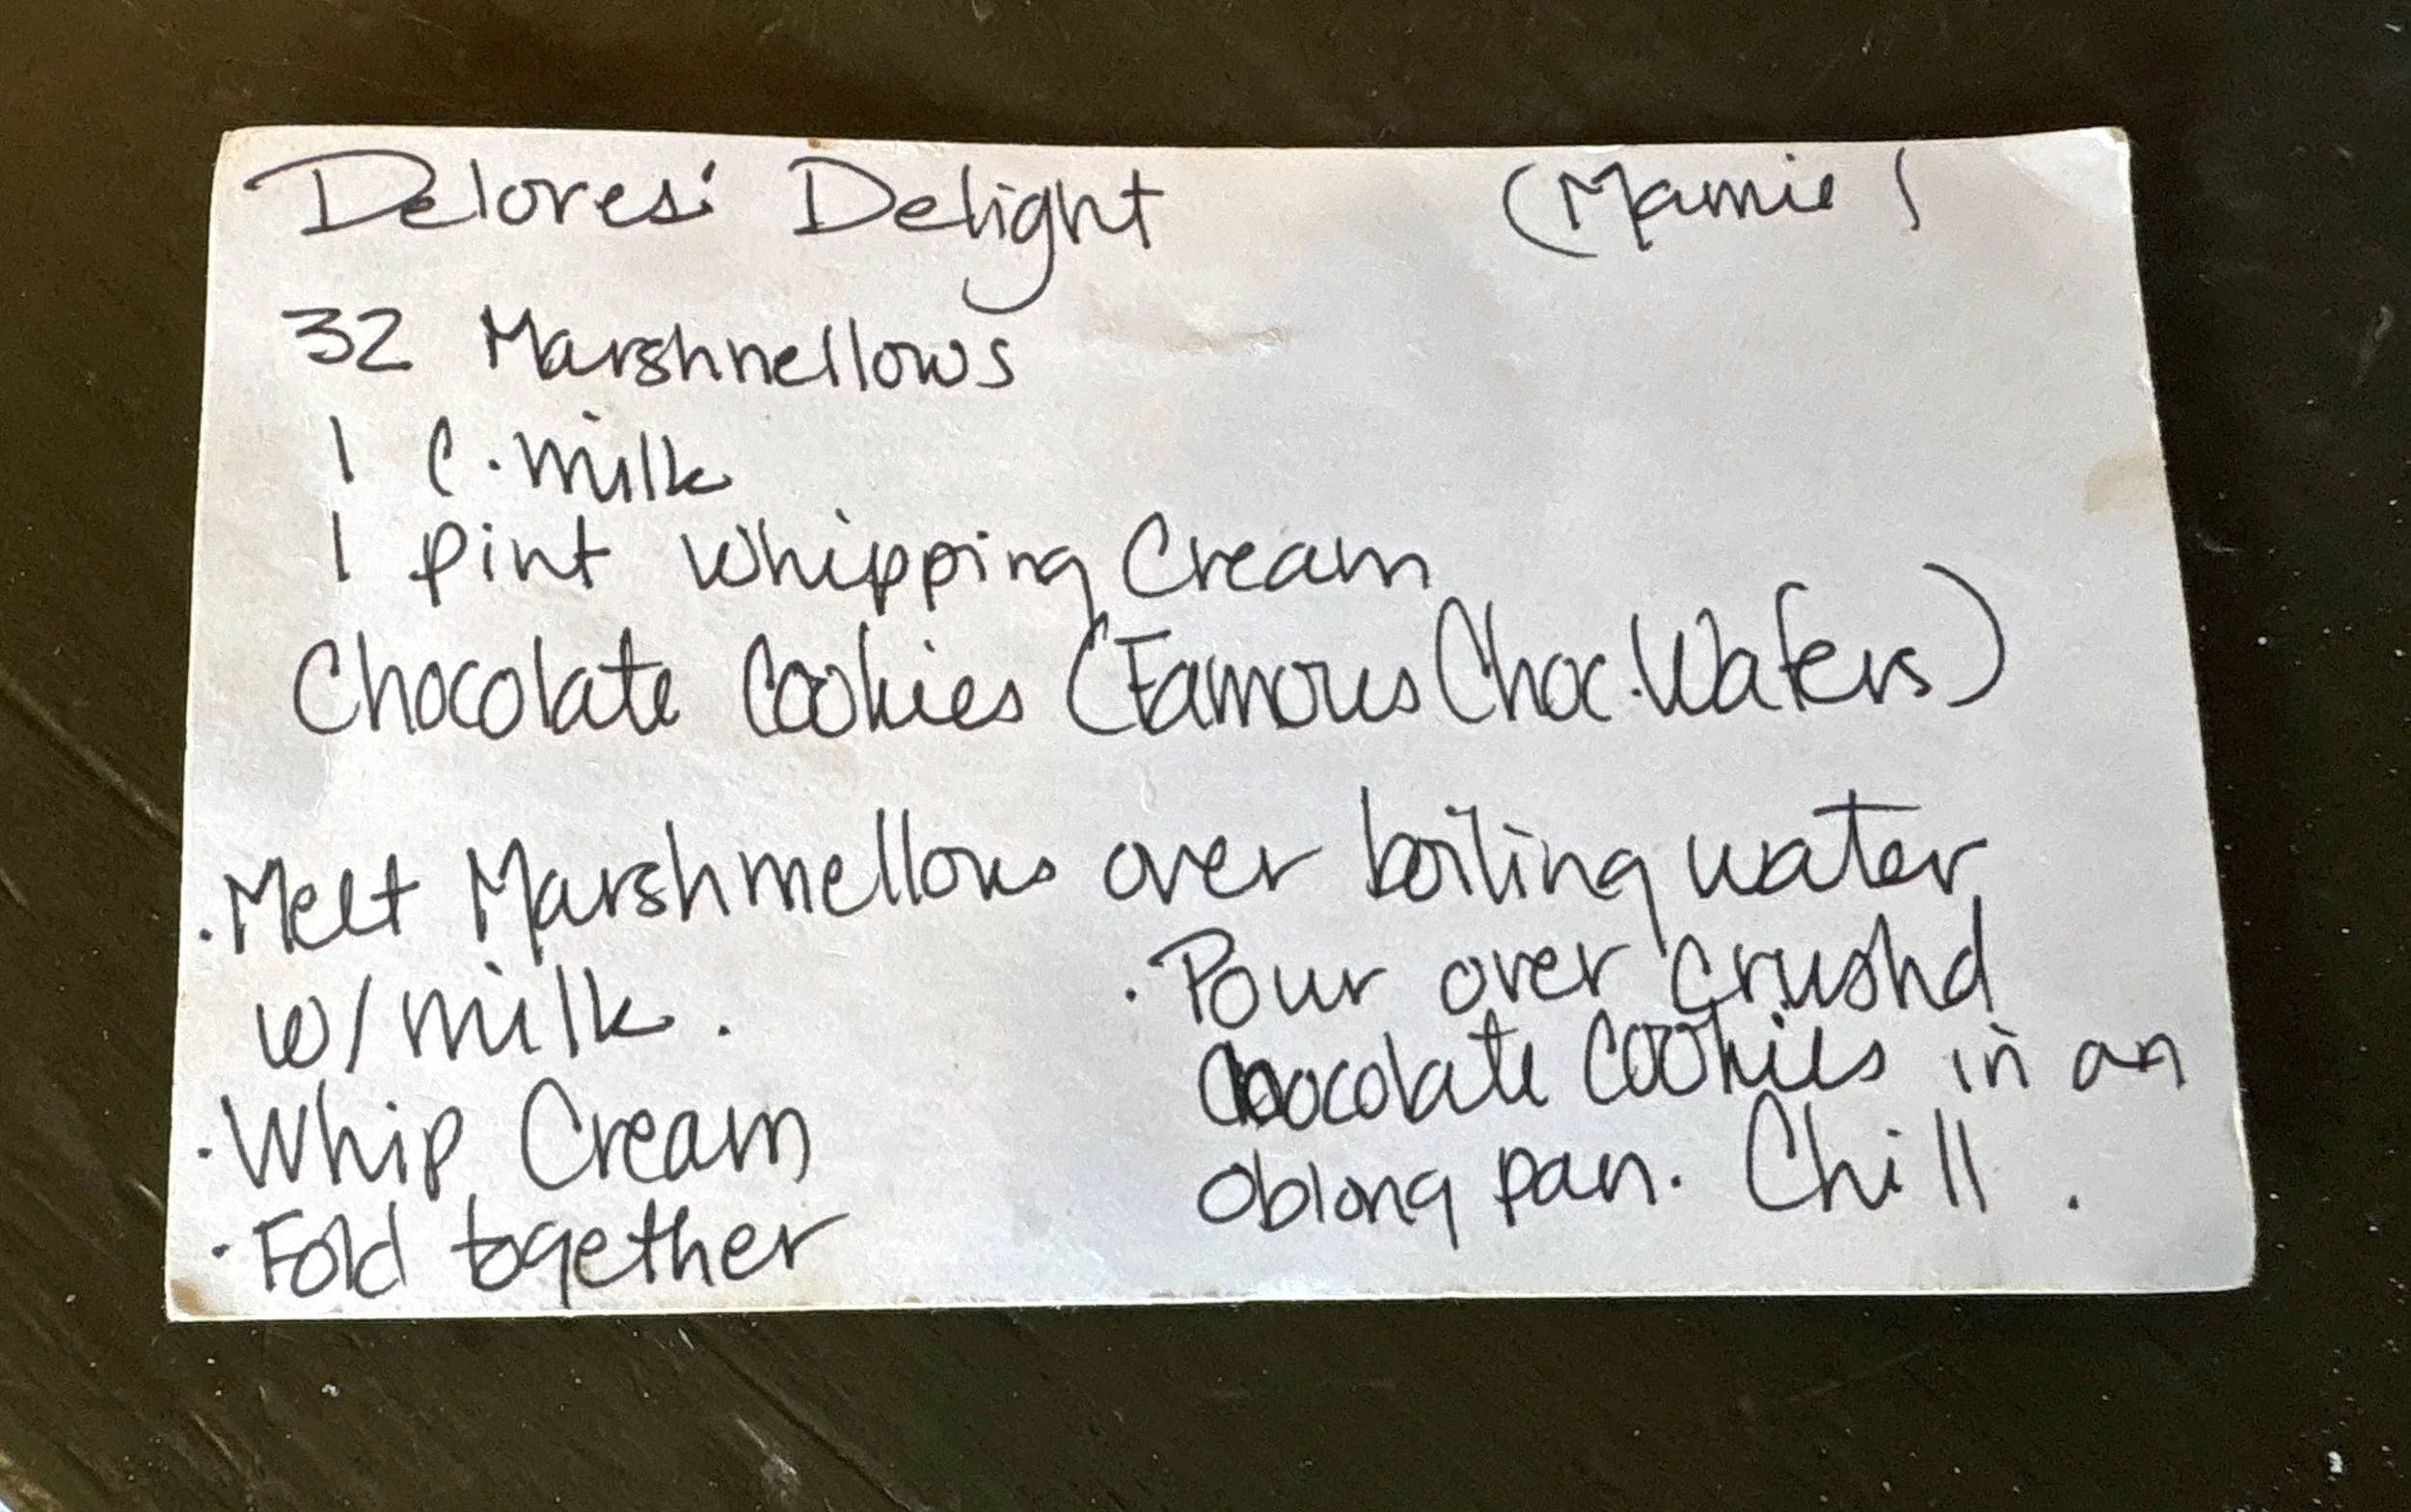 Delores' Delight (Mamie)
32 Marshmellows
1 C. milk
1 pint whipping Cream
Chocolate Cookies (Famous Choc. Wafers)
· Melt Marshmellows over boiling water
w/ milk.
· Whip Cream
· Fold together
· Pour over crushd
chocolate cookies in an
oblong pan. Chill.